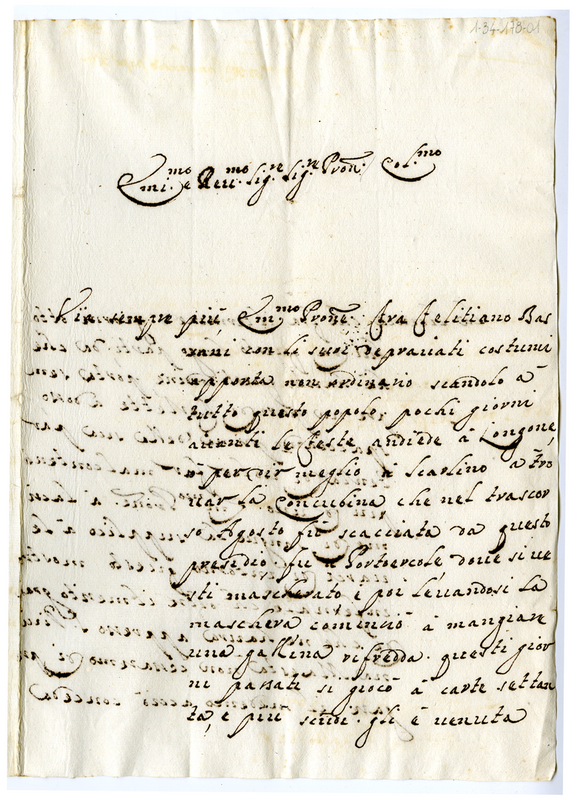 1-34-173-01
Em.mo e Reu.mo Sig.re Sig.re Prõn. Col.mo
Via sempre più, Em.mo Prõn. fra felitiano Bas
xani con li suoi deprauati costumi
apporta non ordinario scandolo à
tutto questo popolo, pochi giorni
auanti le feste andiede à Longone,
ò per dir meglio à Scarlino à tro
uar la Concubina che nel trascor
so Agosto fù scacciata da questo
presidio fu à Portoercole doue si ue
stì mascherato e poi leuandosi la
maschera cominciò à mangiare
una gallina rifredda. questi gior
ni passati si giocò à carte settan
ta, e più scudi. gli è uenuta